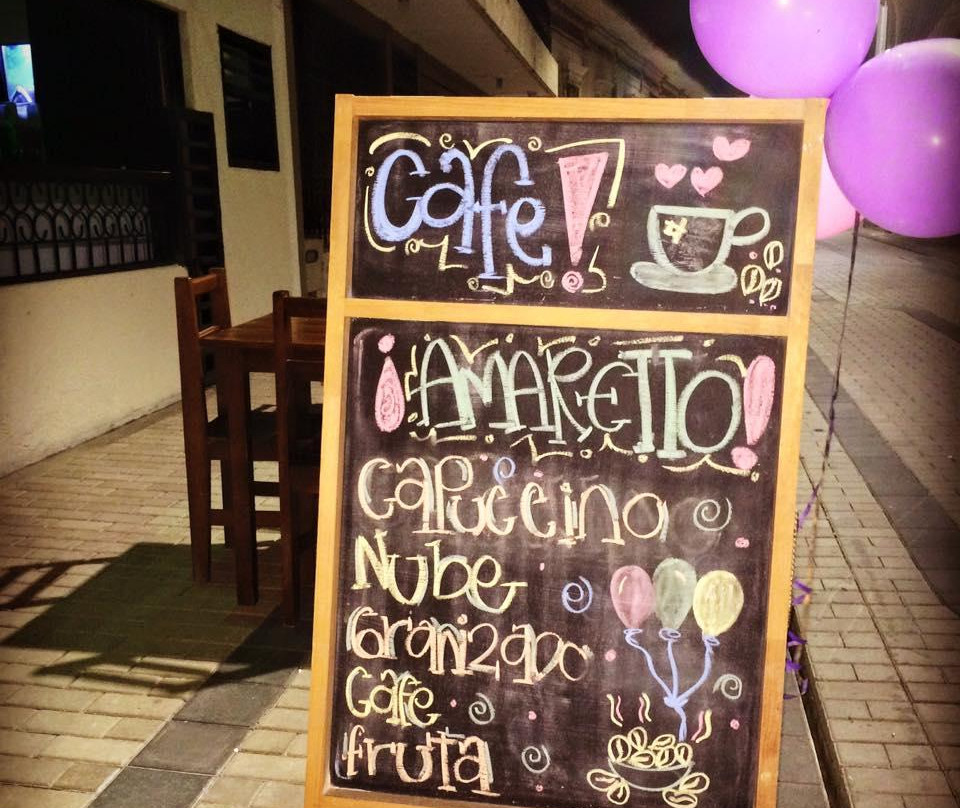 Cafe!
¡AMARETTO!
Capuccino
Nube
Granizado
Cafe
fruta